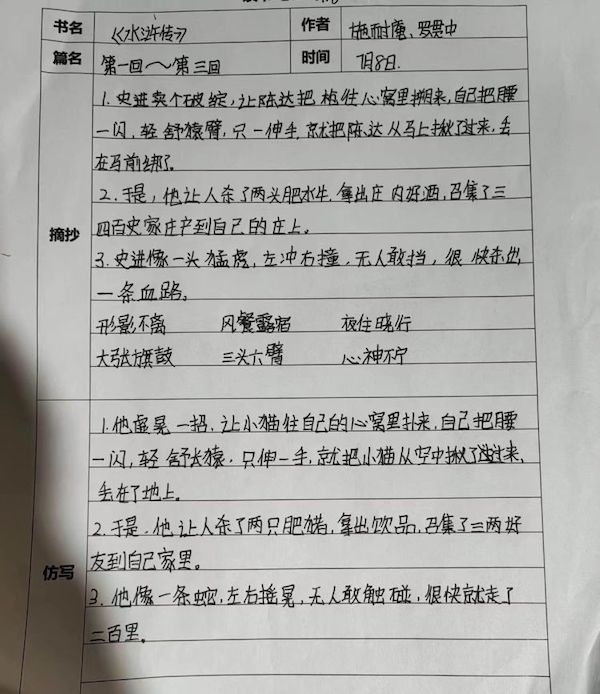 书名 《水浒传》 作者 施耐庵、罗贯中
篇名 第一回~第三回 时间 7月8日.
摘抄
1.史进卖个破绽,让陈达把枪往心窝里搠来,自己把腰
一闪,轻舒猿臂,只一伸手,就把陈达从马上揪了过来,丢
在马前绑了。
2.于是,他让人杀了两头肥水牛,拿出庄内好酒,召集了三
四百史家庄户到自己的庄上。
3.史进像一头猛虎,左冲右撞,无人敢挡,很快杀出
一条血路。
形影不离 风餐露宿 夜住晓行
大张旗鼓 三头六臂 心神不宁
仿写
1.他虚晃一招,让小猫往自己的心窝里扑来,自己把腰
一闪,轻舒长猿,只伸一手,就把小猫从空中揪了过来,
丢在了地上。
2.于是,他让人杀了两只肥猪,拿出饮品,召集了三两好
友到自己家里。
3.他像一条蛇,左右摇晃,无人敢触碰,很快就走了
二百里。